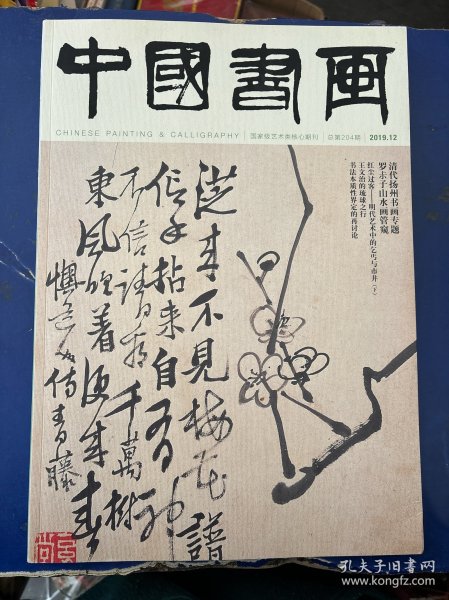 中國書画
CHINESE PAINTING & CALLIGRAPHY | 国家级艺术类核心期刊 | 总第204期 | 2019.12
清代扬州书画专题
山水画管窥
红尘过客——明代艺术中的乞丐与市井（下）
王文治的琉球之行
书法本质性界定的再讨论
從来不見梅花譜
信手拈来自有神
不信 看千萬樹
東風吹着便成春
青藤
孔夫子旧书网
www.kongfz.com